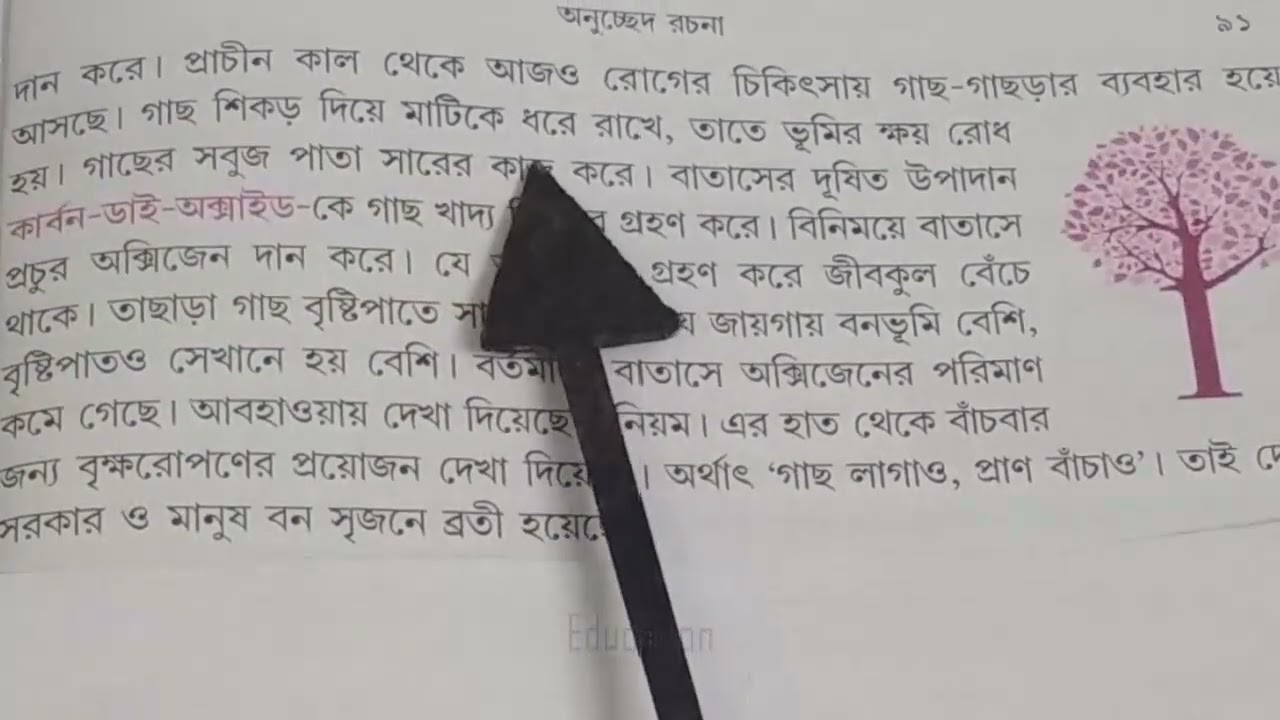 অনুচ্ছেদ রচনা ৯১
দান করে। প্রাচীন কাল থেকে আজও রোগের চিকিৎসায় গাছ-গাছড়ার ব্যবহার হয়ে
আসছে। গাছ শিকড় দিয়ে মাটিকে ধরে রাখে, তাতে ভূমির ক্ষয় রোধ
হয়। গাছের সবুজ পাতা সারের কাজ করে। বাতাসের দূষিত উপাদান
কার্বন-ডাই-অক্সাইড-কে গাছ খাদ্য গ্রহণ করে। বিনিময়ে বাতাসে
প্রচুর অক্সিজেন দান করে। যে গ্রহণ করে জীবকুল বেঁচে
থাকে। তাছাড়া গাছ বৃষ্টিপাতে জায়গায় বনভূমি বেশি,
বৃষ্টিপাতও সেখানে হয় বেশি। বাতাসে অক্সিজেনের পরিমাণ
কমে গেছে। আবহাওয়ায় দেখা দিয়েছে নিয়ম। এর হাত থেকে বাঁচবার
জন্য বৃক্ষরোপণের প্রয়োজন দেখা । অর্থাৎ ‘গাছ লাগাও, প্রাণ বাঁচাও’। তাই
সরকার ও মানুষ বন সৃজনে ব্রতী